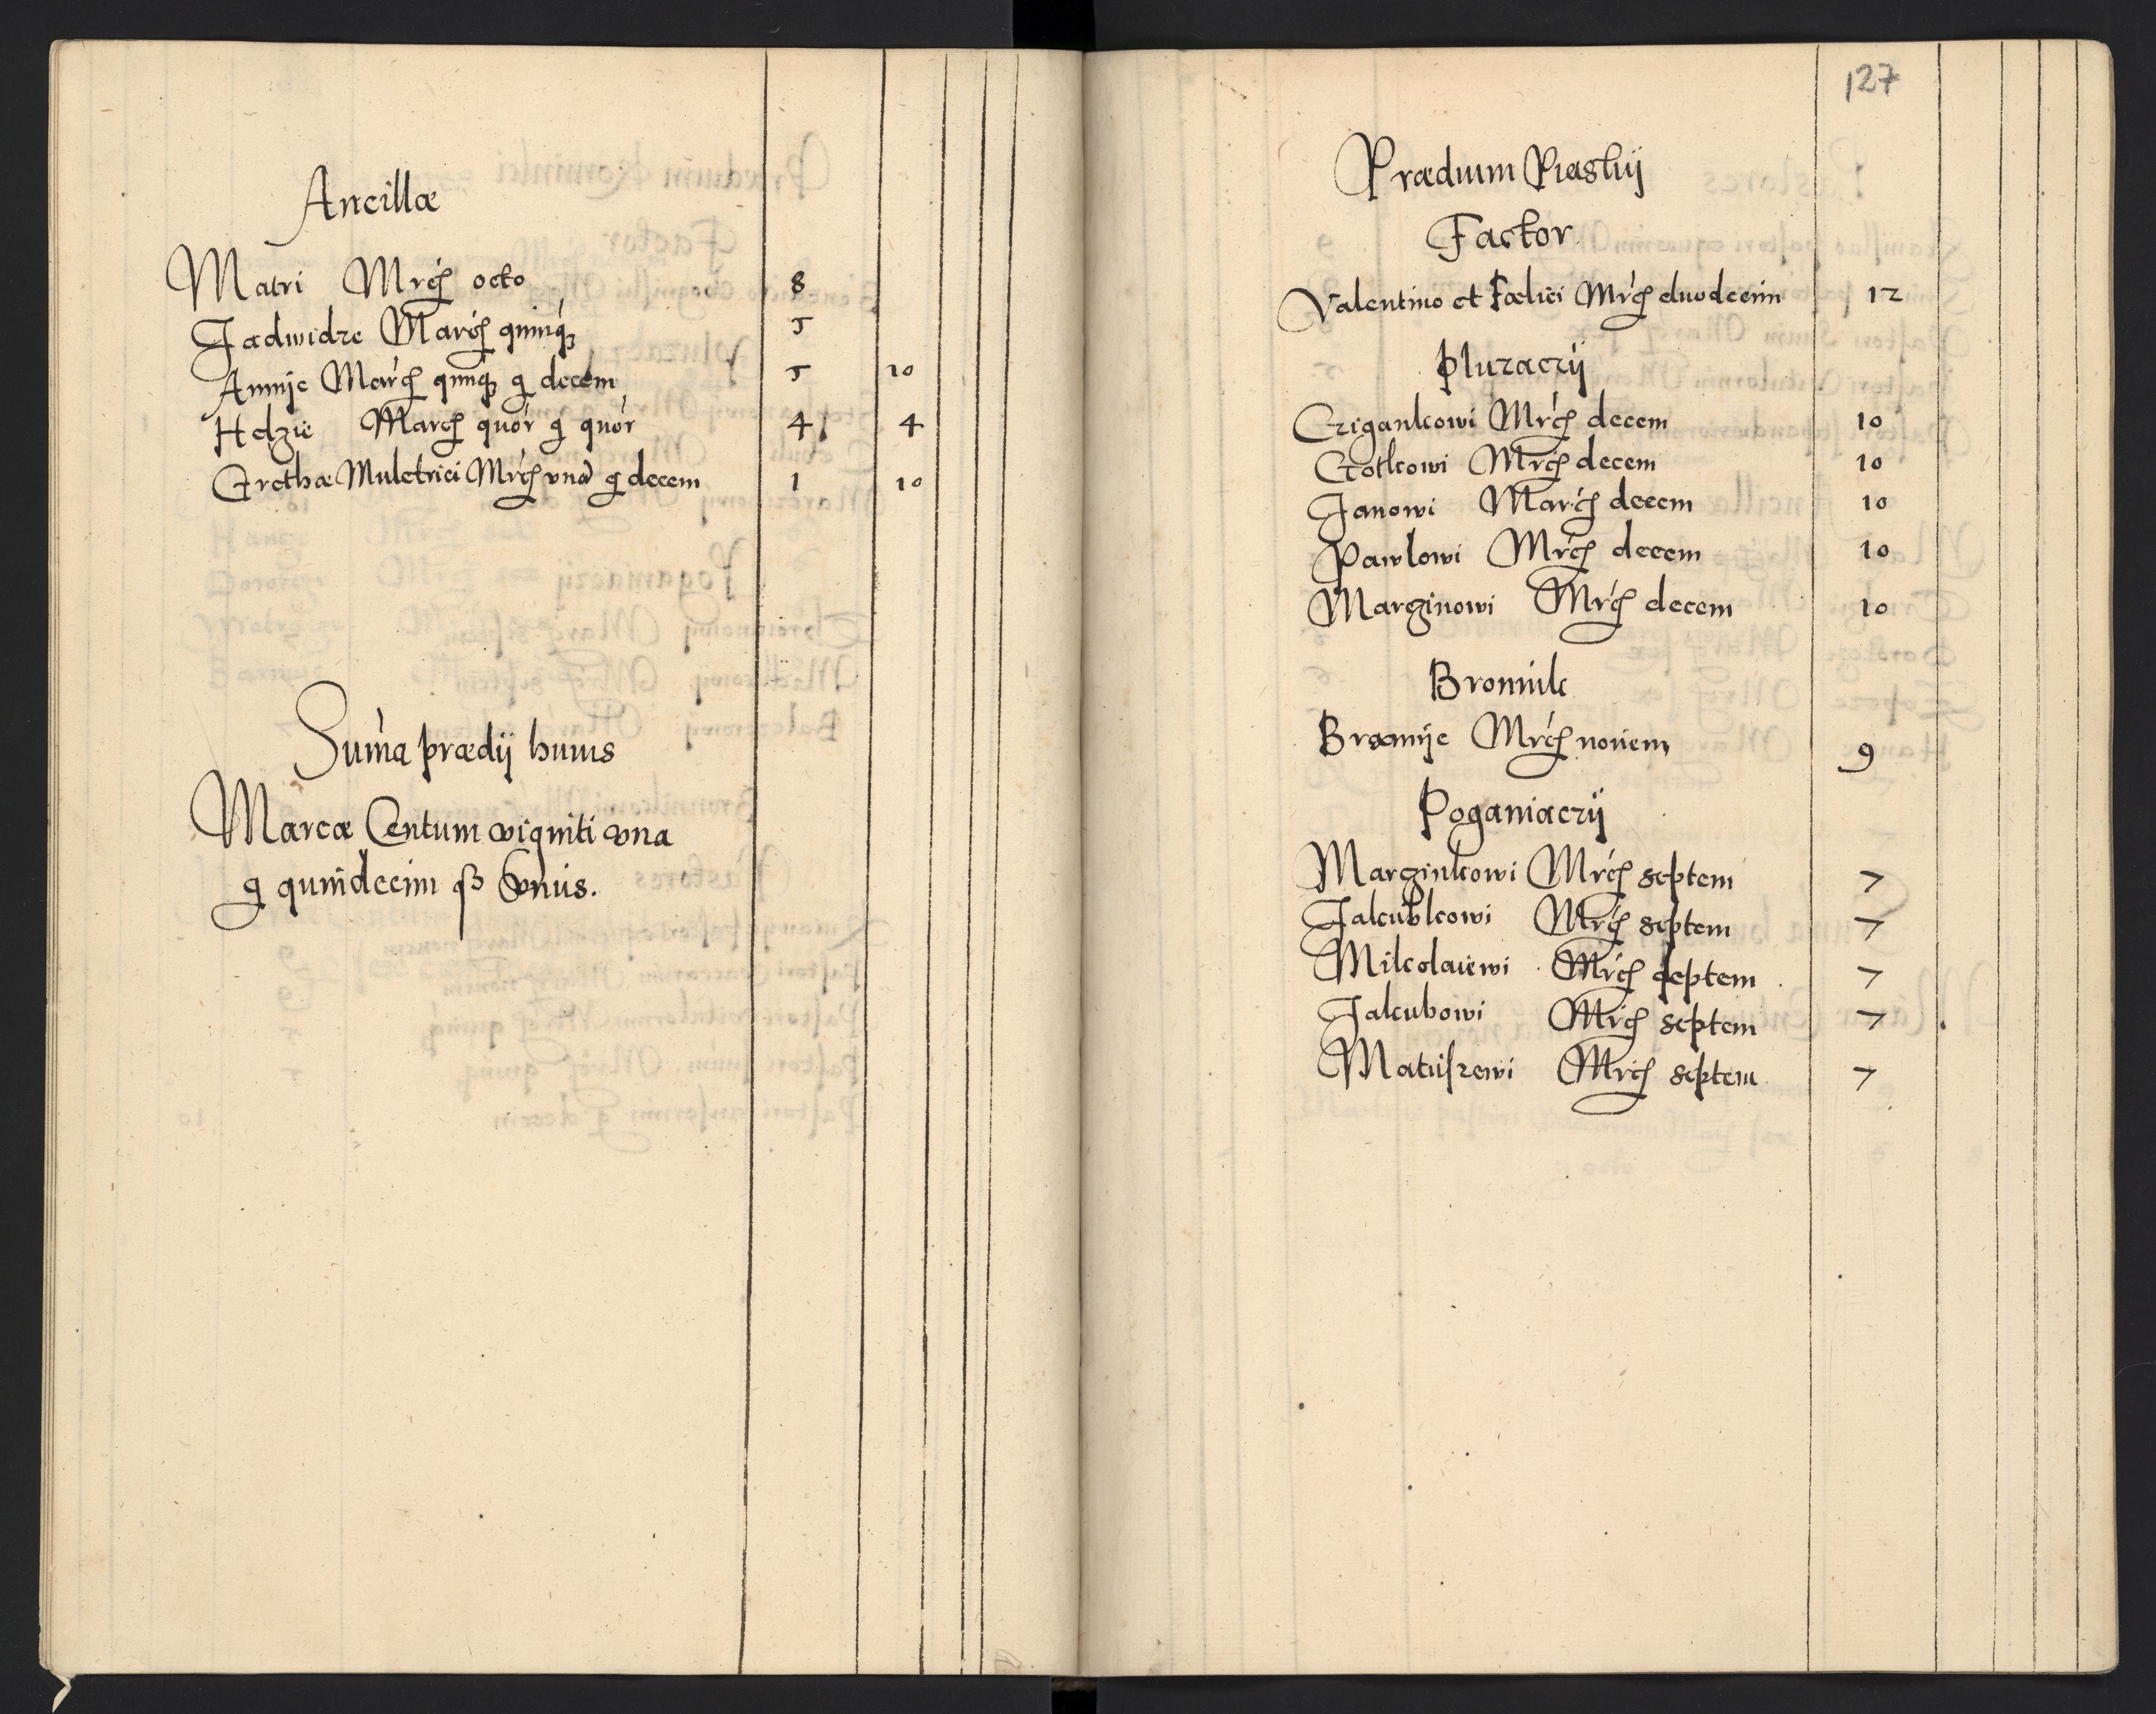 Ancillæ
Matri Mrcs octo 8
Jadwidze Marcs quinq 5
Annÿe Marcs quinq g decem 5 10
Hedzie Marcs quór g quór 4 4
Grethæ Muletrici Mrcs vna g decem 1 10
Suma prædÿ huius
Marcæ Centum vigniti vna
g quindecim ß Vnus.
127
Prædium Piaskÿ
Factor
Valentino et Fœlici Mrcs duodecim 12
Pluzaczÿ
Czigankowi Mrcs decem 10
Gotkowi Mrcs decem 10
Janowi Marcs decem 10
Pawlowi Mrcs decem 10
Marginowi Mrcs decem 10
Bronnik
Mrcs novem 9
Poganiaczÿ
Marginkowi Mrcs septem 7
Jakubkowi Mrcs septem 7
Mikolaiewi Mrcs septem 7
Jakubowi Mrcs septem 7
Matuszewi Mrcs septem 7